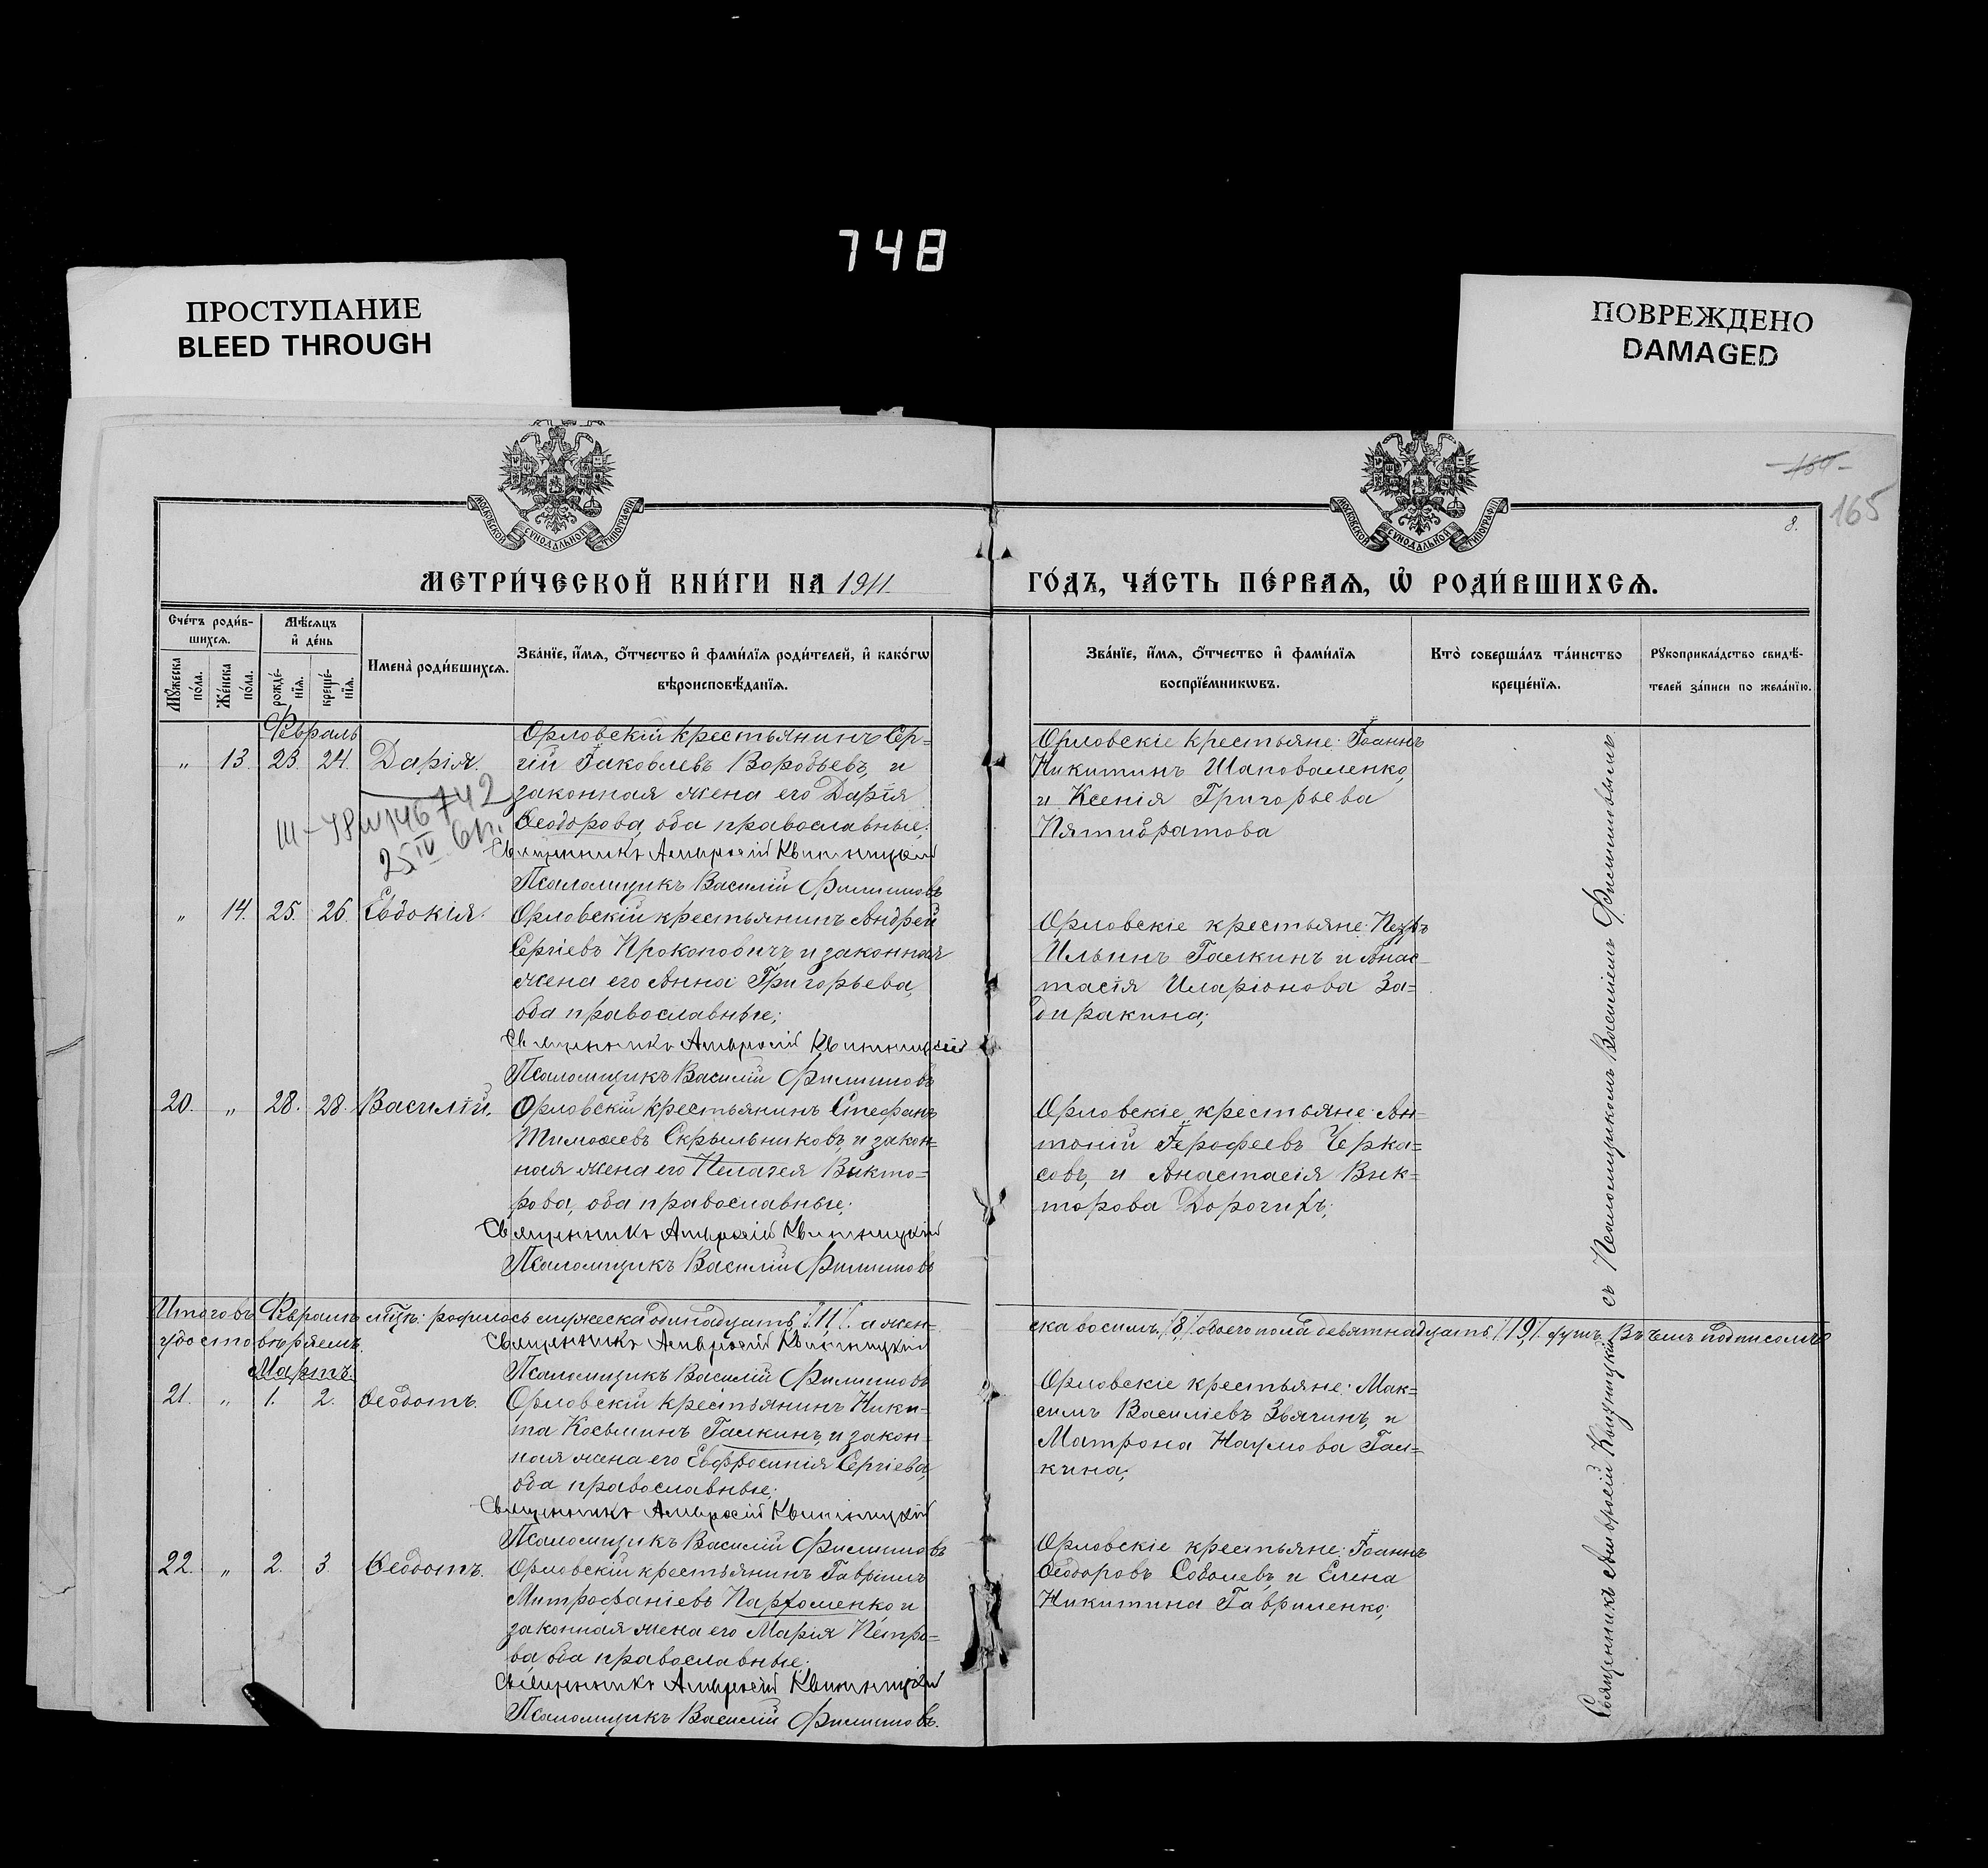 748
ПРОСТУПАНИЕ
BLEED THROUGH
ПОВРЕЖДЕНО
DAMAGED
165
8.
МОСКОВСКОЙ СѴНОДАЛЬНОЙ ТИПОГРАФІИ
МОСКОВСКОЙ СѴНОДАЛЬНОЙ ТИПОГРАФІИ
МЕТРИ́ЧЕСКОЙ КНИ́ГИ НА 1911.
ГО́ДЪ, ЧА́СТЬ ПЕ́РВАѦ, Ѡ҆ РОДИ́ВШИХСѦ.
Сче́тъ роди́в-
шихсѧ.
Мꙋ́жеска
по́ла.
Же́нска
по́ла.
Мѣ́сѧцъ
и҆ де́нь
рожде́-
нїѧ.
креще́-
нїѧ.
Имена̀ роди́вшихсѧ.
Зва́нїе, и҆́мѧ, ѻ҆́тчество и҆ фами́лїѧ роди́телей, и҆ како́гѡ
вѣроисповѣ́данїѧ.
Зва́нїе, и҆́мѧ, ѻ҆́тчество и҆ фами́лїѧ
воспрїе́мникѡвъ.
Кто̀ соверша́лъ та́инство
креще́нїѧ.
Рꙋкоприкла́дство свидѣ́-
телей за́писи по жела́нїю.
Февраль
„ 13. 23. 24. Дарія.
Орловскій крестьянинъ Сер=
гій Іаковлевъ Воробьевъ, и
законная жена его Дарія
Ѳеодорова, оба православные;
Священникъ Амвросій Квитницкій
Псаломщикъ Василій Филиповъ
Орловскіе крестьяне: Іоаннъ
Никитинъ Шаповаленко,
и Ксенія Григорьева
Пятибратова
146742
25 IV
„ 14. 25. 26. Евдокія.
Орловскій крестьянинъ Андрей
Сергіевъ Прокоповичъ, и законная
жена его Анна Григорьева,
оба православные;
Священникъ Амвросій Квитницкій
Псаломщикъ Василій Филиповъ
Орловскіе крестьяне: Петръ
Ильинъ Галкинъ и Анас-
тасія Иларіонова За=
диракина;
20. „ 28. 28. Василій.
Орловскій крестьянинъ Стефанъ
Тимоѳеевъ Скрыльниковъ, и закон=
ная жена его Пелагея Викто=
рова, оба православные;
Священникъ Амвросій Квитницкій
Псаломщикъ Василій Филиповъ
Орловскіе крестьяне: Ан=
тоній Іерофеевъ Черка=
совъ, и Анастасія Вик=
торова Дорогихъ;
Итого въ Февралѣ мѣц: родилось мужеска одинадцать /11/. а жен-
ска восимь /8/ обоего пола девятнадцать /19/ душъ. Въ чемъ подписомъ
удостовѣряемъ.
Священникъ Амвросій Квитницкій
Псаломщикъ Василій Филиповъ
Мартъ.
21. „ 1. 2. Ѳеодотъ.
Орловскій крестьянинъ Ники-
та Косьминъ Галкинъ, и закон-
ная жена его Евфросинія Сергіева,
оба православные;
Священникъ Амвросій Квитницкій
Псаломщикъ Василій Филиповъ
Орловскіе крестьяне: Мак=
симъ Василіевъ Звягинъ, и
Матрона Наумова Гал=
кина;
22. „ 2. 3. Ѳеодотъ.
Орловскій крестьянинъ Гавріилъ
Митрофаніевъ Пархоменко и
законная жена его Марія Петро=
ва, оба православные;
Священникъ Амвросій Квитницкій
Псаломщикъ Василій Филиповъ.
Орловскіе крестьяне: Іоаннъ
Ѳеодоровъ Соболевъ, и Елена
Никитина Гавриленко;
Священникъ Амвросій Квитницкій съ Псаломщикомъ Василіемъ Филиповымъ